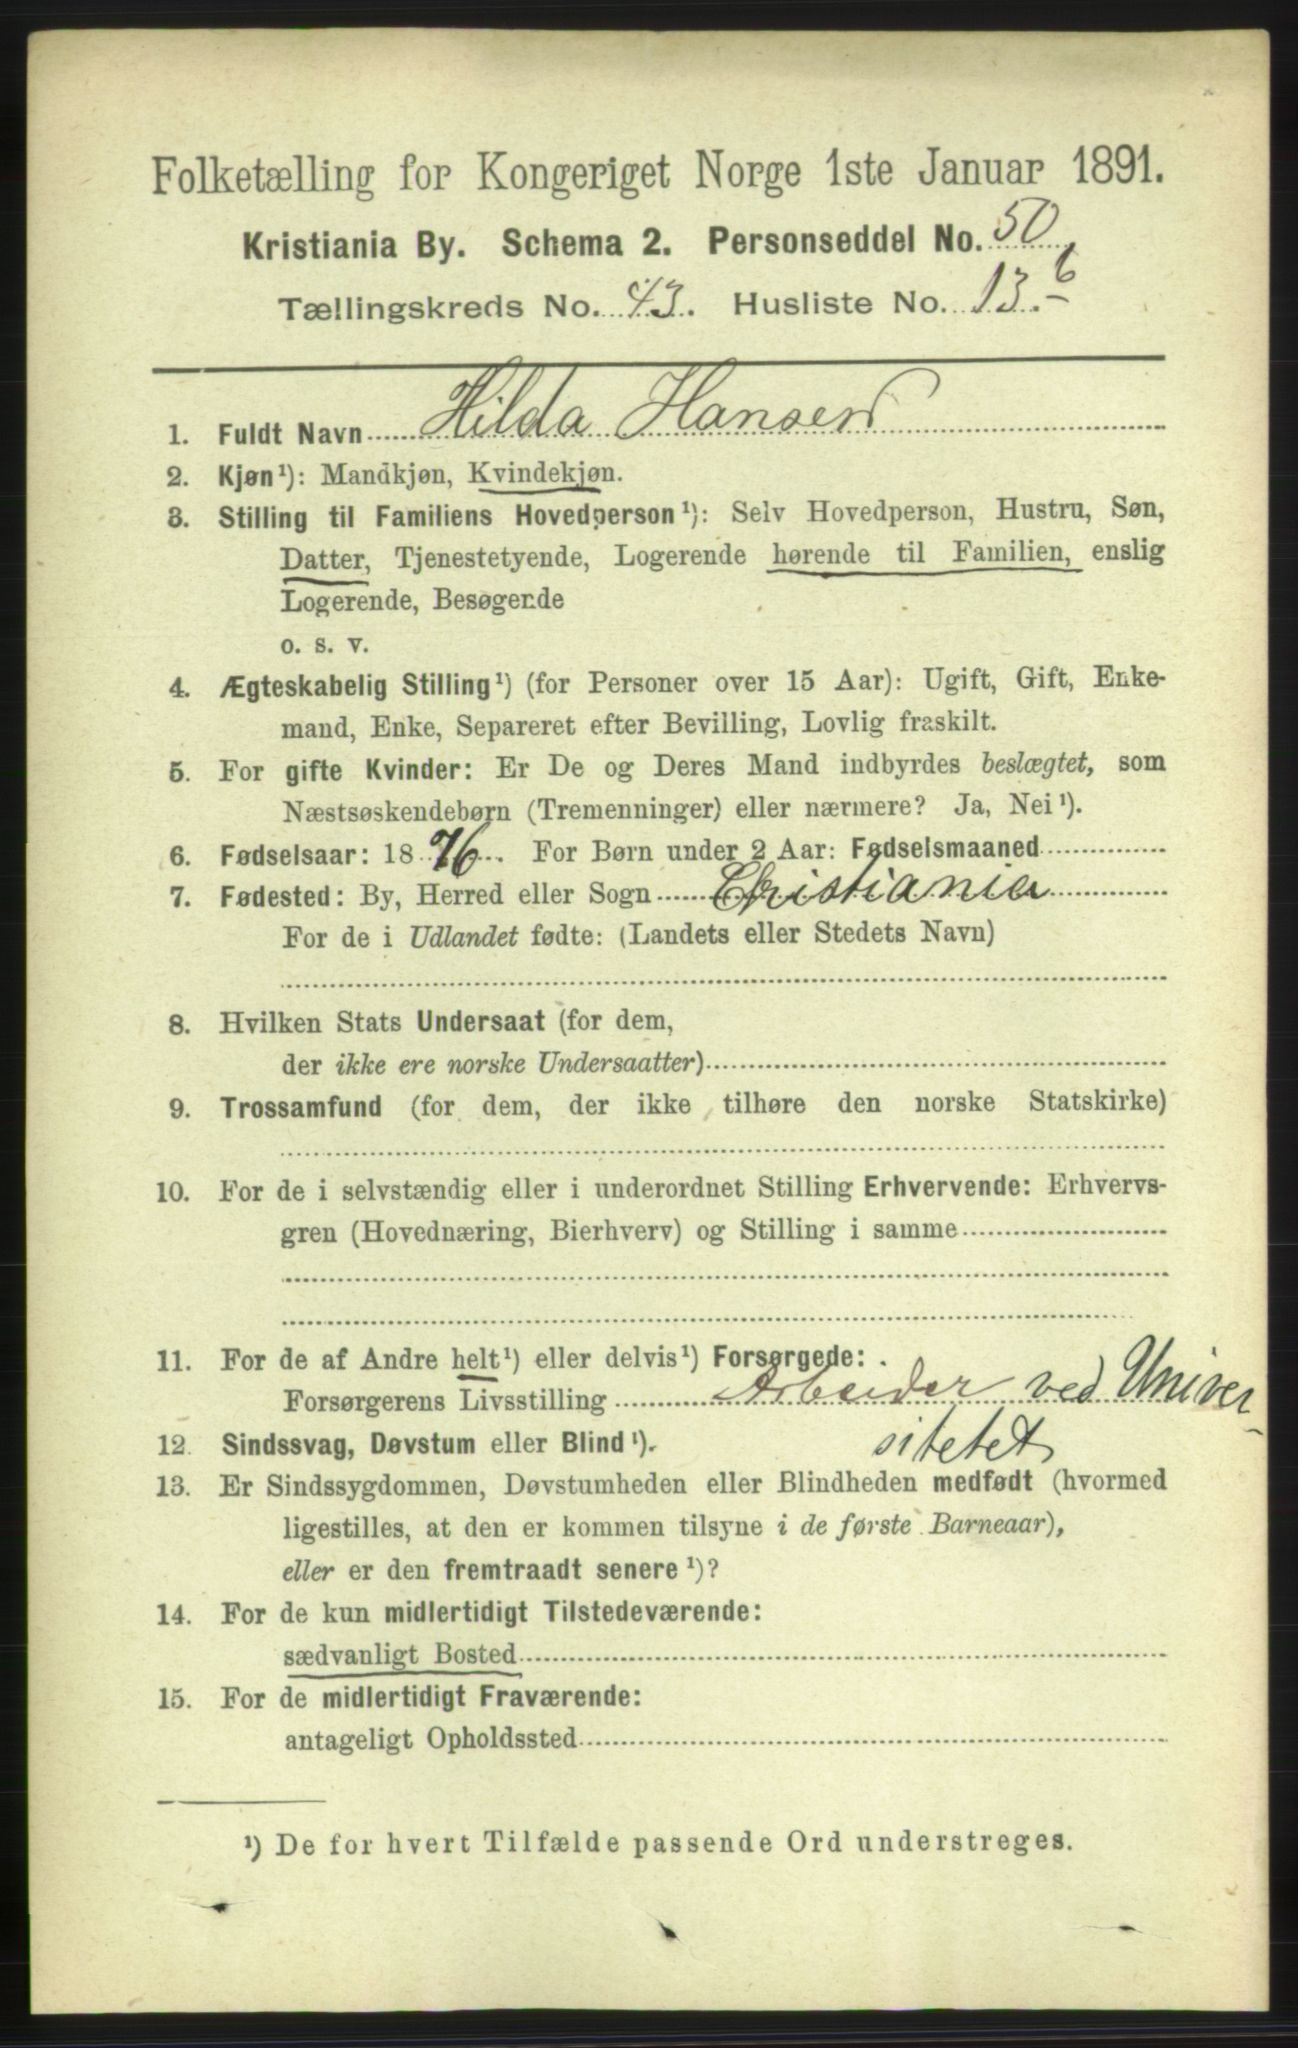 Folketælling for Kongeriget Norge 1ste Januar 1891.
Kristiania By. Schema 2. Personseddel No. 50
Tællingskreds No. 43. Husliste No. 13.6
1. Fuldt Navn Hilda Hansen
2. Kjøn¹): Mandkjøn, Kvindekjøn.
3. Stilling til Familiens Hovedperson¹): Selv Hovedperson, Hustru, Søn,
Datter, Tjenestetyende, Logerende hørende til Familien, enslig
Logerende, Besøgende
o. s. v.
4. Ægteskabelig Stilling¹) (for Personer over 15 Aar): Ugift, Gift, Enke-
mand, Enke, Separeret efter Bevilling, Lovlig fraskilt.
5. For gifte Kvinder: Er De og Deres Mand indbyrdes beslægtet, som
Næstsøskendebørn (Tremenninger) eller nærmere? Ja, Nei¹).
6. Fødselsaar: 1876. For Børn under 2 Aar: Fødselsmaaned
7. Fødested: By, Herred eller Sogn Christiania
For de i Udlandet fødte: (Landets eller Stedets Navn)
8. Hvilken Stats Undersaat (for dem,
der ikke ere norske Undersaatter)
9. Trossamfund (for dem, der ikke tilhøre den norske Statskirke)
10. For de i selvstændig eller i underordnet Stilling Erhvervende: Erhvervs-
gren (Hovednæring, Bierhverv) og Stilling i samme
11. For de af Andre helt¹) eller delvis¹) Forsørgede:
Forsørgerens Livsstilling Arbeider ved Univer-
sitetet
12. Sindssvag, Døvstum eller Blind¹).
13. Er Sindssygdommen, Døvstumheden eller Blindheden medfødt (hvormed
ligestilles, at den er kommen tilsyne i de første Barneaar),
eller er den fremtraadt senere¹)?
14. For de kun midlertidigt Tilstedeværende:
sædvanligt Bosted
15. For de midlertidigt Fraværende:
antageligt Opholdssted
¹) De for hvert Tilfælde passende Ord understreges.